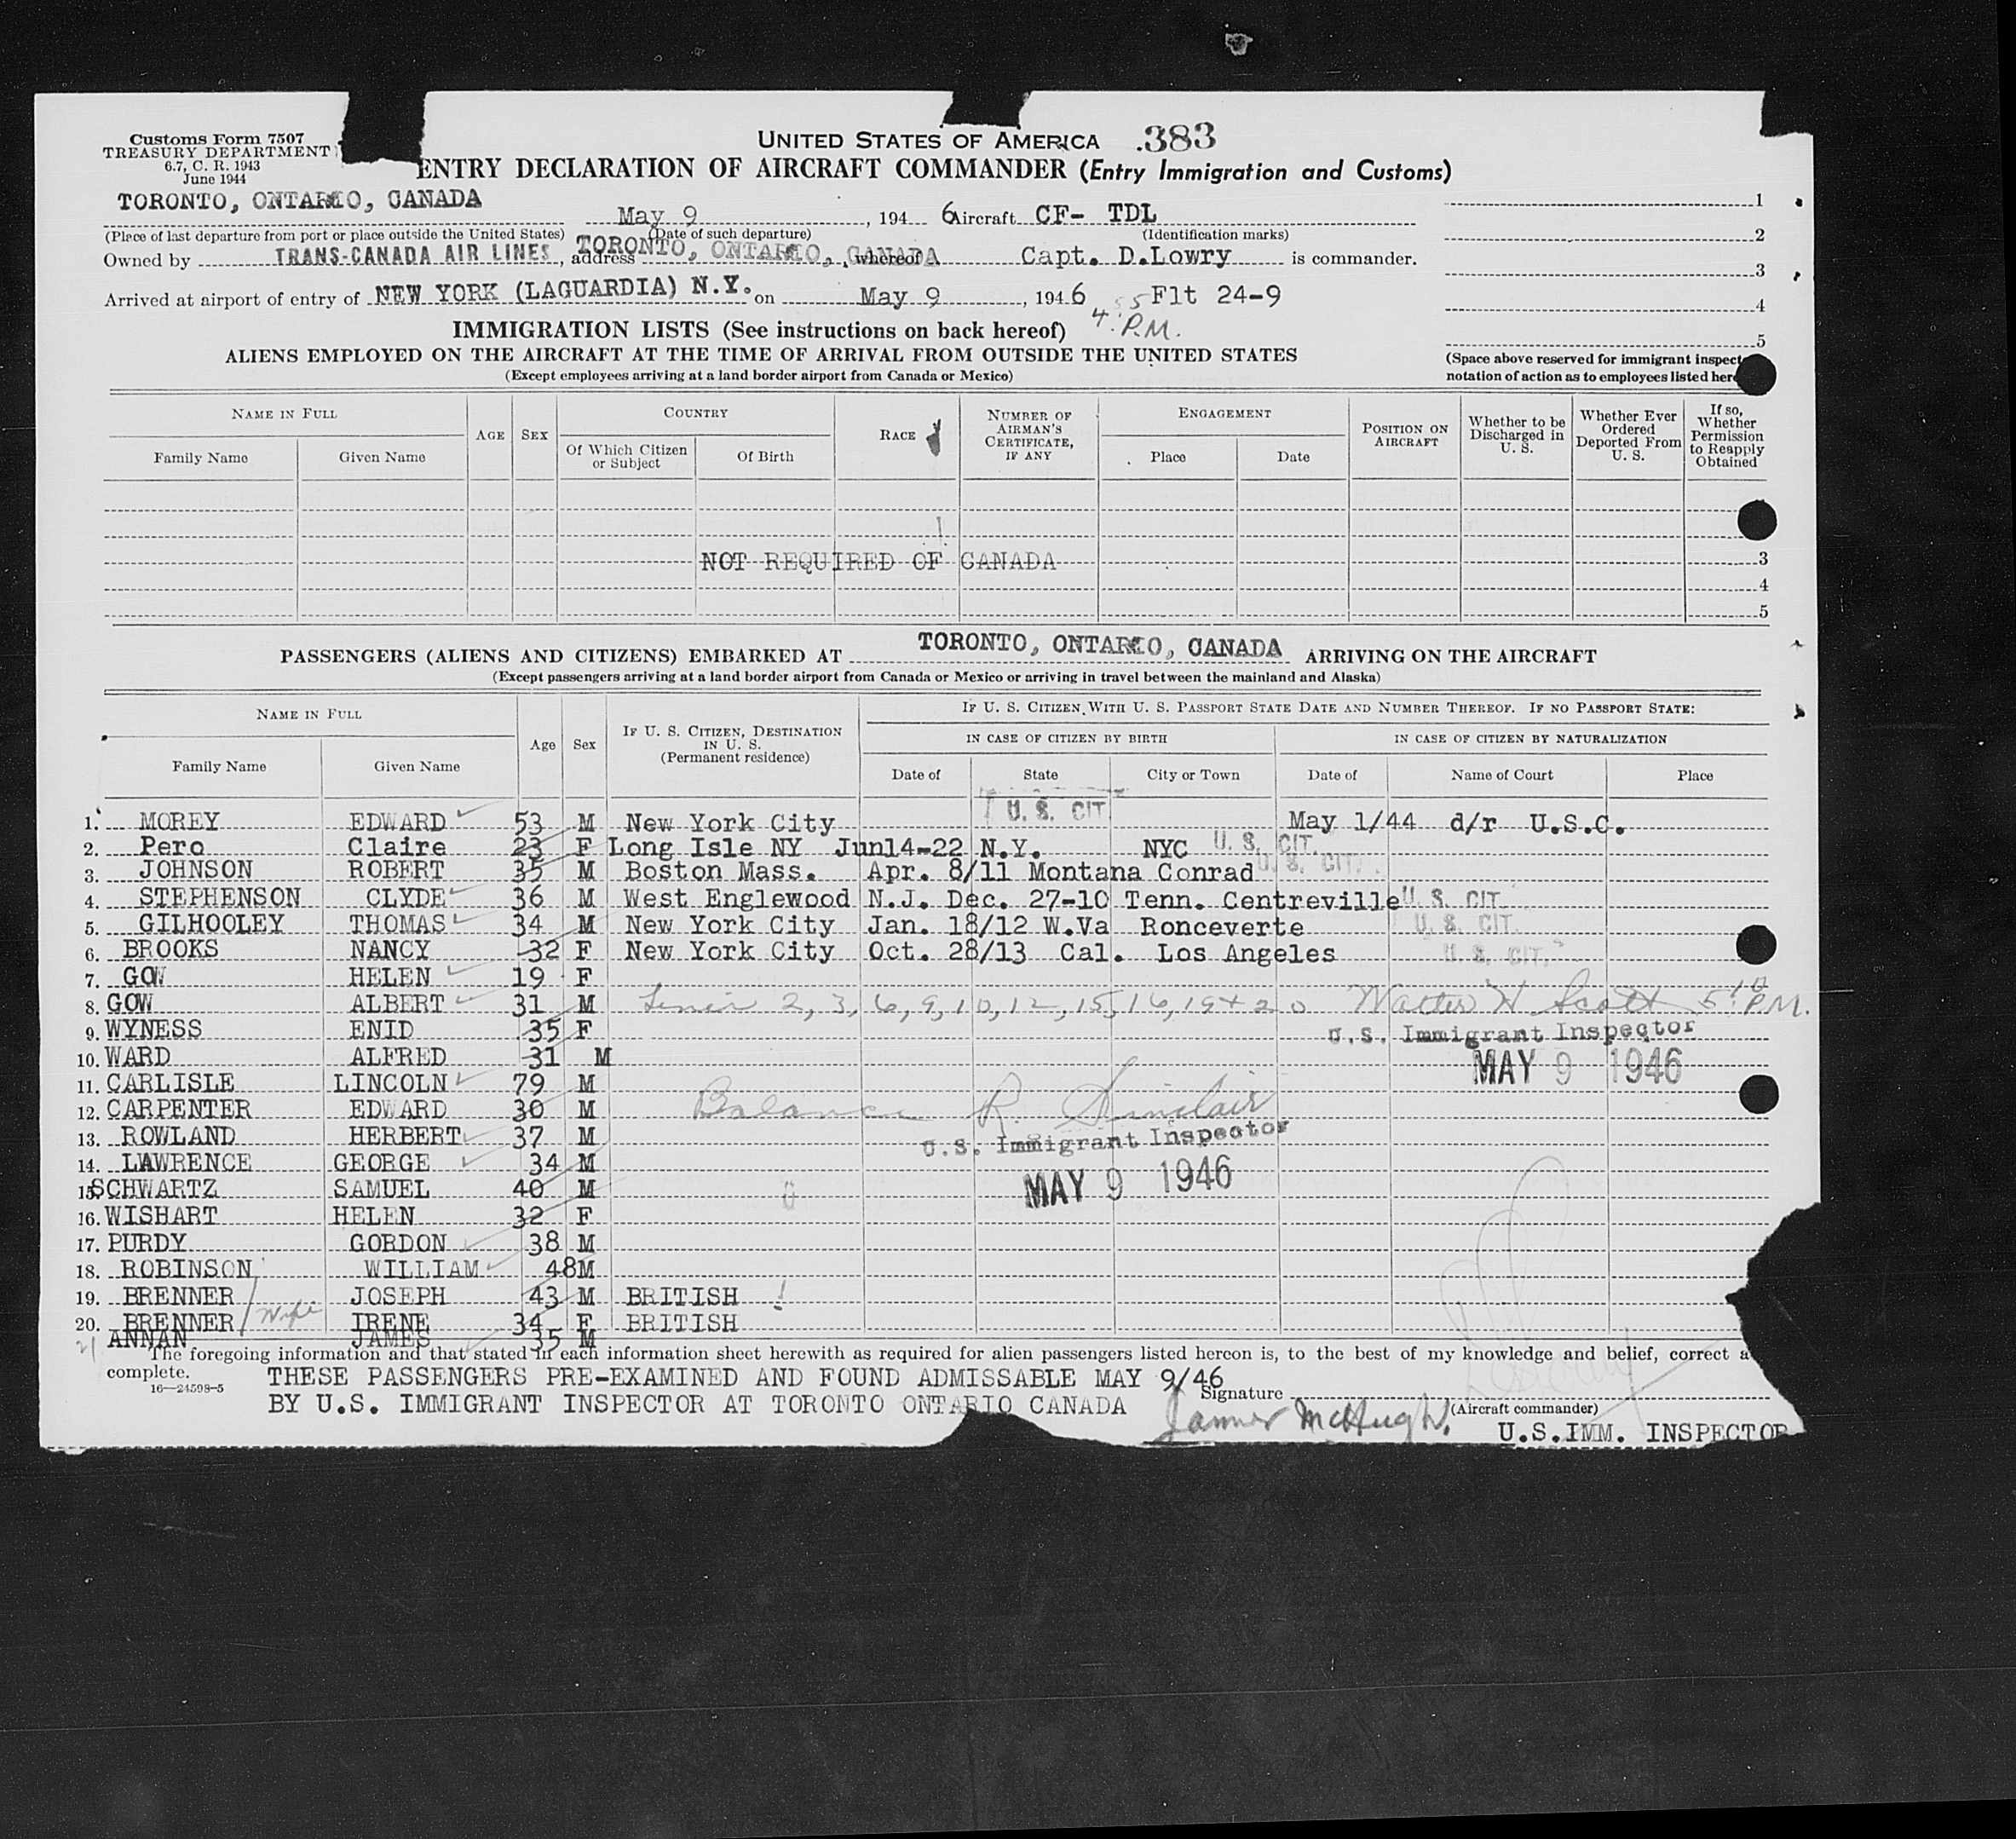 Customs Form 7507
TREASURY DEPARTMENT
6.7, C. R. 1943
June 1944
UNITED STATES OF AMERICA 383
ENTRY DECLARATION OF AIRCRAFT COMMANDER (Entry Immigration and Customs)
TORONTO, ONTARIO, CANADA May 9, 194 6 Aircraft CF- TDL
(Place of last departure from port or place outside the United States) (Date of such departure) (Identification marks)
Owned by TRANS-CANADA AIR LINES, address TORONTO, ONTARIO, CANADA whereof Capt. D.Lowry is commander.
Arrived at airport of entry of NEW YORK (LAGUARDIA) N.Y. on May 9, 194 6 Flt 24-9
4:55 P.M.
1
2
3
4
5
(Space above reserved for immigrant inspect
notation of action as to employees listed her
IMMIGRATION LISTS (See instructions on back hereof)
ALIENS EMPLOYED ON THE AIRCRAFT AT THE TIME OF ARRIVAL FROM OUTSIDE THE UNITED STATES
(Except employees arriving at a land border airport from Canada or Mexico)
NAME IN FULL
Family Name Given Name
AGE SEX
COUNTRY
Of Which Citizen or Subject Of Birth
RACE
NUMBER OF AIRMAN'S CERTIFICATE, IF ANY
ENGAGEMENT
Place Date
POSITION ON AIRCRAFT
Whether to be Discharged in U. S.
Whether Ever Ordered Deported From U. S.
If so, Whether Permission to Reapply Obtained
NOT REQUIRED OF CANADA 3
4
5
PASSENGERS (ALIENS AND CITIZENS) EMBARKED AT TORONTO, ONTARIO, CANADA ARRIVING ON THE AIRCRAFT
(Except passengers arriving at a land border airport from Canada or Mexico or arriving in travel between the mainland and Alaska)
NAME IN FULL
Family Name Given Name
Age Sex
IF U. S. CITIZEN, DESTINATION IN U. S. (Permanent residence)
IF U. S. CITIZEN WITH U. S. PASSPORT STATE DATE AND NUMBER THEREOF. IF NO PASSPORT STATE:
IN CASE OF CITIZEN BY BIRTH IN CASE OF CITIZEN BY NATURALIZATION
Date of State City or Town Date of Name of Court Place
1. MOREY EDWARD 53 M New York City U. S. CIT May 1/44 d/r U.S.C.
2. Pero Claire 23 F Long Isle NY Jun14-22 N.Y. NYC U. S. CIT.
3. JOHNSON ROBERT 35 M Boston Mass. Apr. 8/11 Montana Conrad U. S. CIT.
4. STEPHENSON CLYDE 36 M West Englewood N.J. Dec. 27-10 Tenn. Centreville U. S. CIT.
5. GILHOOLEY THOMAS 34 M New York City Jan. 18/12 W.Va Ronceverte U. S. CIT.
6. BROOKS NANCY 32 F New York City Oct. 28/13 Cal. Los Angeles U. S. CIT.
7. GOW HELEN 19 F
8. GOW ALBERT 31 M 2, 3, 6, 9, 10, 12, 15, 16, 19 + 20 Walter H Scott 5:10 P.M.
9. WYNESS ENID 35 F U.S. Immigrant Inspector
10. WARD ALFRED 31 M MAY 9 1946
11. CARLISLE LINCOLN 79 M
12. CARPENTER EDWARD 30 M Balance R. Sinclair
13. ROWLAND HERBERT 37 M U.S. Immigrant Inspector
14. LAWRENCE GEORGE 34 M MAY 9 1946
15. SCHWARTZ SAMUEL 40 M
16. WISHART HELEN 32 F
17. PURDY GORDON 38 M
18. ROBINSON WILLIAM 48M
19. BRENNER JOSEPH 43 M BRITISH
20. BRENNER Wife IRENE 34 F BRITISH
21 ANNAN JAMES 35 M
The foregoing information and that stated in each information sheet herewith as required for alien passengers listed hereon is, to the best of my knowledge and belief, correct a
complete.
16—24598-5
THESE PASSENGERS PRE-EXAMINED AND FOUND ADMISSABLE MAY 9/46
Signature
BY U.S. IMMIGRANT INSPECTOR AT TORONTO ONTARIO CANADA
James McHugh (Aircraft commander)
U.S.IMM. INSPECTOR